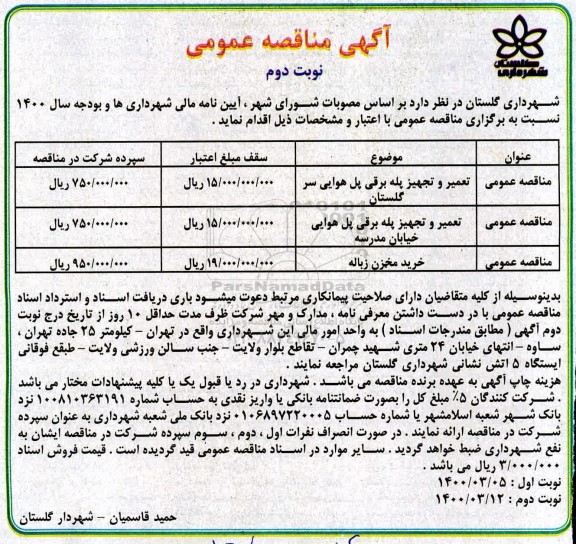 آگهی مناقصه عمومی
نوبت دوم
شهرداری گلستان
شهرداری گلستان در نظر دارد بر اساس مصوبات شورای شهر ، آیین نامه مالی شهرداری ها و بودجه سال ۱۴۰۰
نسبت به برگزاری مناقصه عمومی با اعتبار و مشخصات ذیل اقدام نماید .
عنوان موضوع سقف مبلغ اعتبار سپرده شرکت در مناقصه
مناقصه عمومی تعمیر و تجهیز پله برقی پل هوایی سر ۱۵/۰۰۰/۰۰۰/۰۰۰ ریال ۷۵۰/۰۰۰/۰۰۰ ریال
گلستان
مناقصه عمومی تعمیر و تجهیز پله برقی پل هوایی ۱۵/۰۰۰/۰۰۰/۰۰۰ ریال ۷۵۰/۰۰۰/۰۰۰ ریال
خیابان مدرسه
مناقصه عمومی خرید مخزن زباله ۱۹/۰۰۰/۰۰۰/۰۰۰ ریال ۹۵۰/۰۰۰/۰۰۰ ریال
ParsNamadData
بدینوسیله از کلیه متقاضیان دارای صلاحیت پیمانکاری مرتبط دعوت میشود باری دریافت اسناد و استرداد اسناد
مناقصه عمومی با در دست داشتن معرفی نامه ، مدارک و مهر شرکت ظرف مدت حداقل ۱۰ روز از تاریخ درج نوبت
دوم آگهی ( مطابق مندرجات اسناد ) به واحد امور مالی این شهرداری واقع در تهران – کیلومتر ۲۵ جاده تهران ،
ساوه – انتهای خیابان ۲۴ متری شهید چمران – تقاطع بلوار ولایت – جنب سالن ورزشی ولایت – طبقع فوقانی
ایستگاه ۵ اتش نشانی شهرداری گلستان مراجعه نمایند .
هزینه چاپ آگهی به عهده برنده مناقصه می باشد . شهرداری در رد یا قبول یک یا کلیه پیشنهادات مختار می باشد
. شرکت کنندگان ۵٪ مبلغ کل را بصورت ضمانتنامه بانکی یا واریز نقدی به حساب شماره ۱۰۰۸۱۰۳۶۳۱۹۱ نزد
بانک شهر شعبه اسلامشهر یا شماره حساب ۰۱۰۶۸۹۷۲۲۰۰۰۵ نزد بانک ملی شعبه شهرداری به عنوان سپرده
شرکت در مناقصه ارائه نمایند . در صورت انصراف نفرات اول ، دوم ، سوم سپرده شرکت در مناقصه ایشان به
نفع شهرداری ضبط خواهد گردید . سایر موارد در اسناد مناقصه عمومی قید گردیده است . قیمت فروش اسناد
۳/۰۰۰/۰۰۰ ریال می باشد .
نوبت اول : ۱۴۰۰/۰۳/۰۵
نوبت دوم : ۱۴۰۰/۰۳/۱۲
حمید قاسمیان – شهردار گلستان